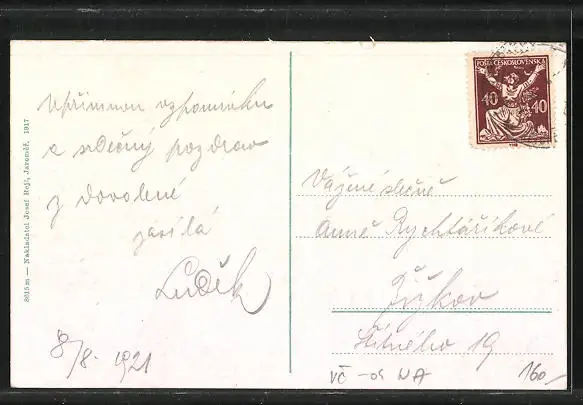 Upřímnou vzpomínku
a srdečný pozdrav
z dovolené
zasílá
Luděk
8/8. 1921
8015 m — Nakladatel Josef Rejl, Jaroměř. 1917
POŠTA ČESKOSLOVENSKÁ
40 40
Vážené slečně
Anně Rychtaříkové
Žižkov
Štítného 19
VČ -os WA
160,-